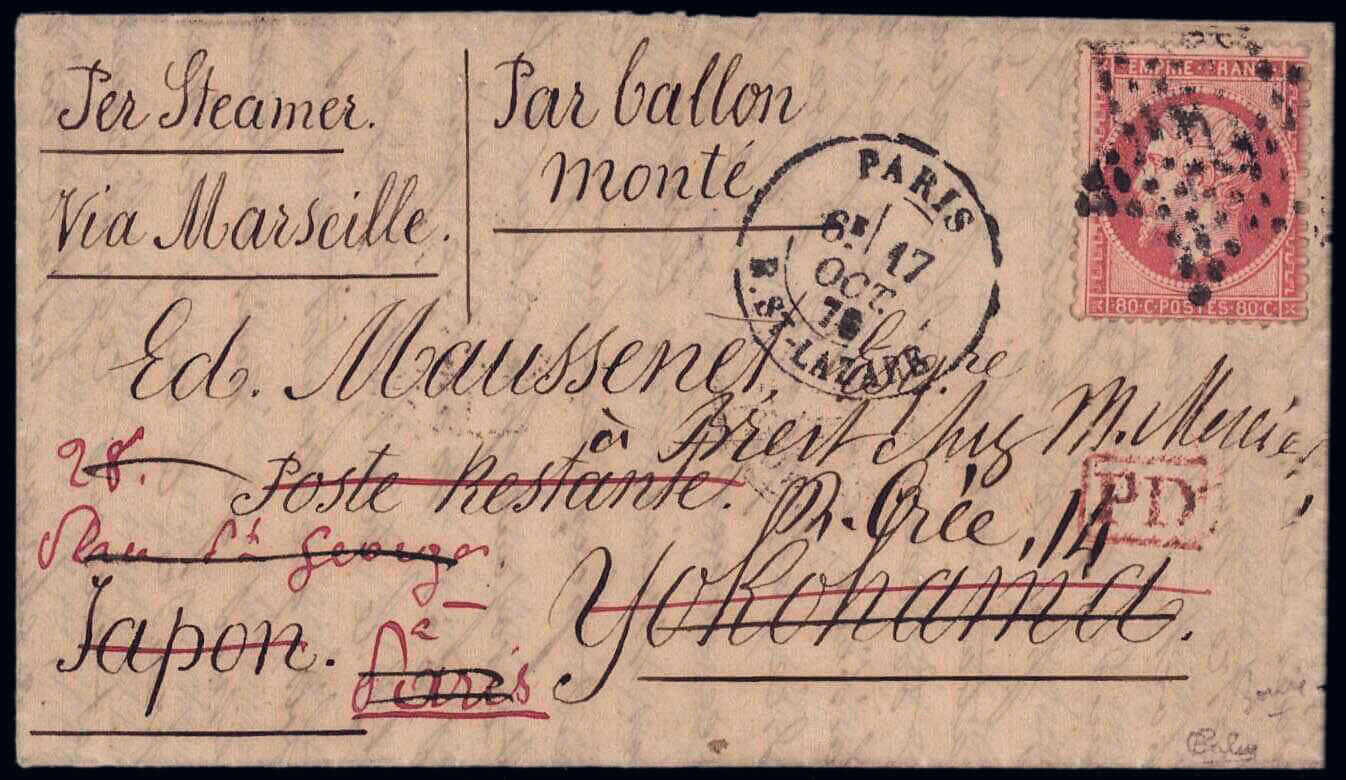 Per Steamer.
Via Marseille.
Par ballon
monté
EMPIRE FRANC
80·C·POSTES·80·C
PARIS
6E 17
OCT.
70
R. ST-LAZARE
Ed. Maussenet,
à Brest chez M. Mercier
28.
Poste Restante.
R. Crée, 14
PD
Rue St Georges
Yokohama.
Japon.
à
Paris